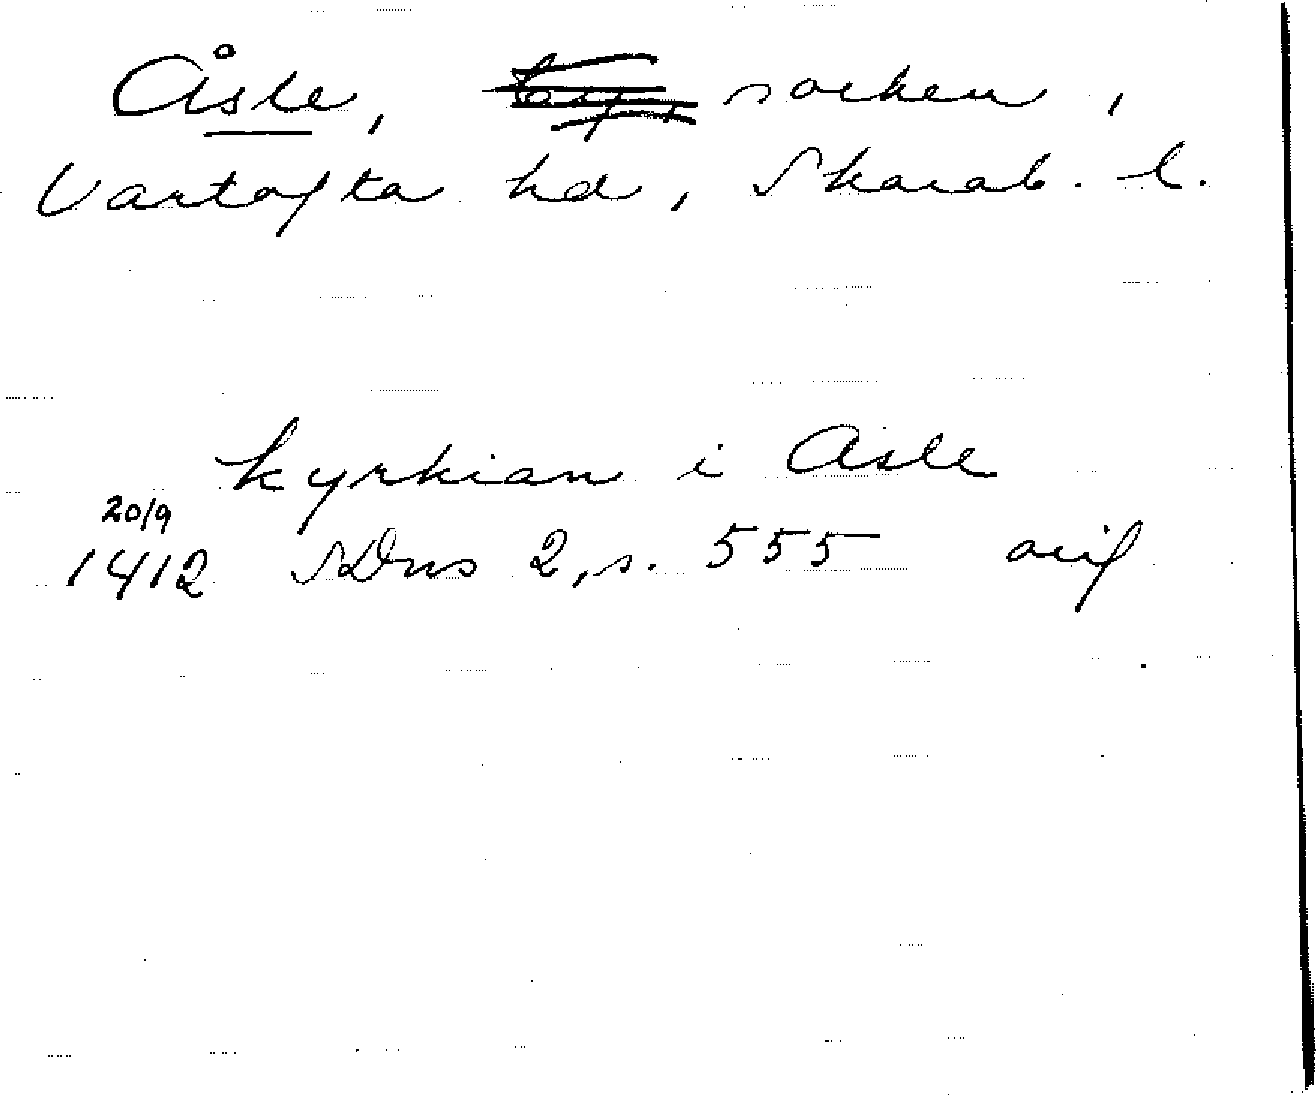 Åsle, socken,
Vartofta hd, Skarab. l.
kyrkian i Asle
20/9
1412 SDns 2, s. 555 avs